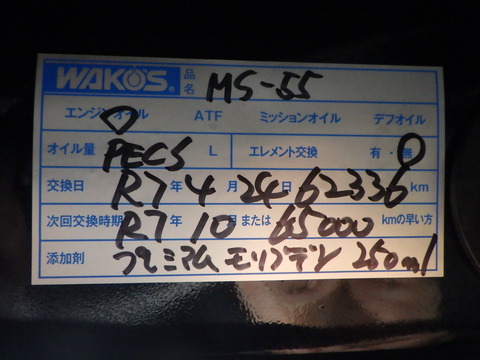 WAKO'S 品名 MS-55
エンジンオイル ATF ミッションオイル デフオイル
オイル量 PECS L エレメント交換 有・無
交換日 R7年4月24日 62336km
次回交換時期 R7年10月または 65000kmの早い方
添加剤 プレミアム モリブデン 250ml